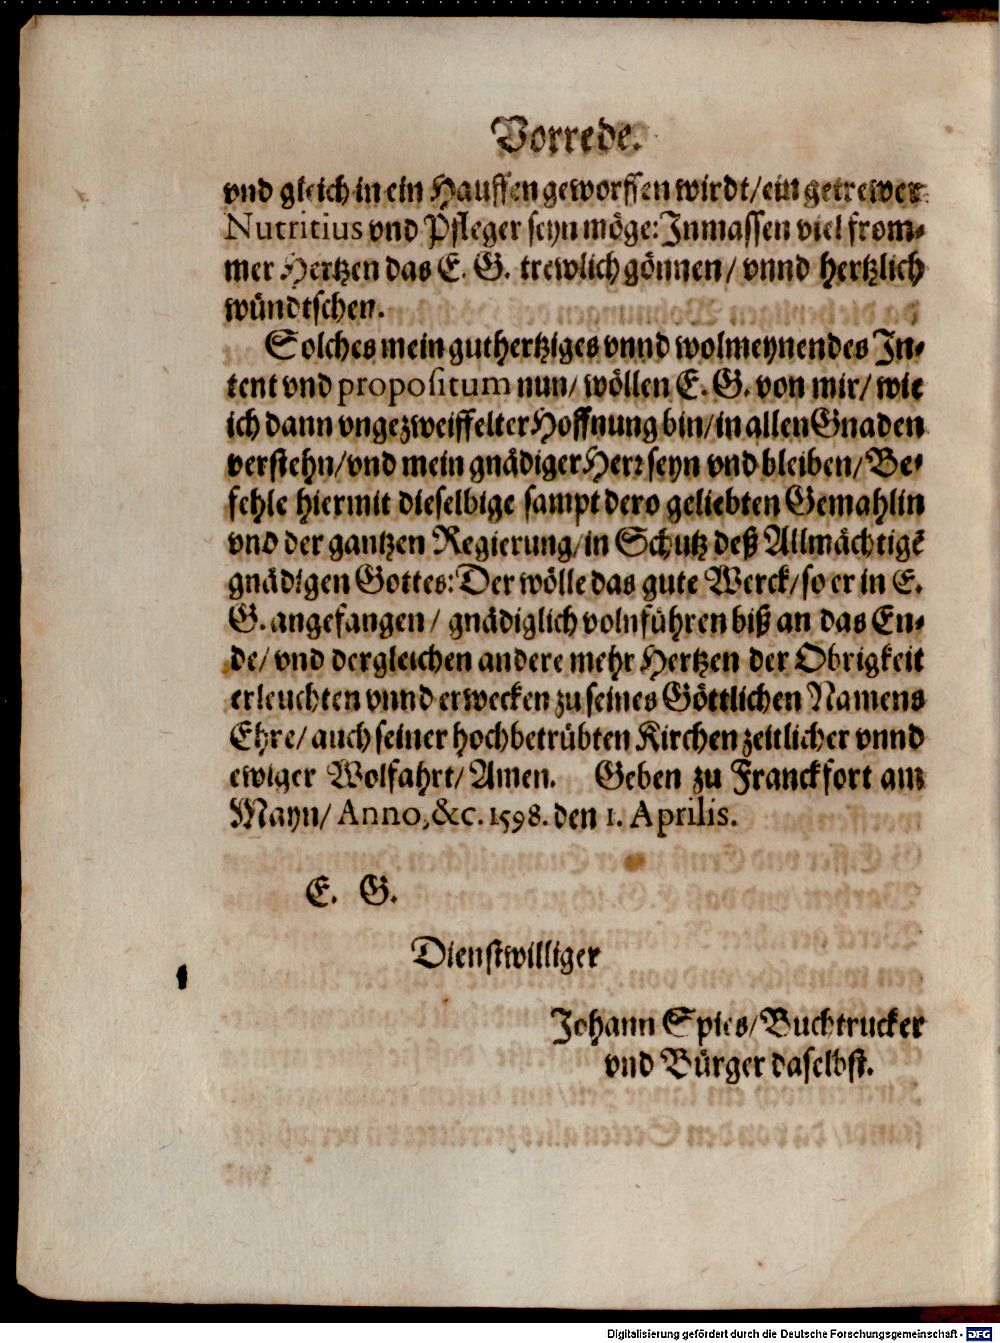 Vorrede.
vnd gleich in ein Hauffen geworffen wirdt/ ein getrewer
Nutritius vnd Pfleger seyn möge: Inmassen viel from-
mer Hertzen das E. G. trewlich gönnen/ vnnd hertzlich
wündtschen.
Solches mein guthertziges vnnd wolmeynendes In-
tent vnd propositum nun/ wöllen E. G. von mir/ wie
ich dann vngezweiffelter Hoffnung bin/ in allen Gnaden
verstehn/ vnd mein gnädiger Herr seyn vnd bleiben/ Be-
fehle hiermit dieselbige sampt dero geliebten Gemahlin
vnd der gantzen Regierung/ in Schutz deß Allmächtigẽ
gnädigen Gottes: Der wölle das gute Werck/ so er in E.
G. angefangen/ gnädiglich volnführen biß an das En-
de/ vnd dergleichen andere mehr Hertzen der Obrigkeit
erleuchten vnnd erwecken zu seines Göttlichen Namens
Ehre/ auch seiner hochbetrübten Kirchen zeitlicher vnnd
ewiger Wolfahrt/ Amen. Geben zu Franckfort am
Mayn/ Anno, &c. 1598. den 1. Aprilis.
E. G.
Dienstwilliger
Johann Spies/ Buchtrucker
vnd Bürger daselbst.
Digitalisierung gefördert durch die Deutsche Forschungsgemeinschaft - DFG